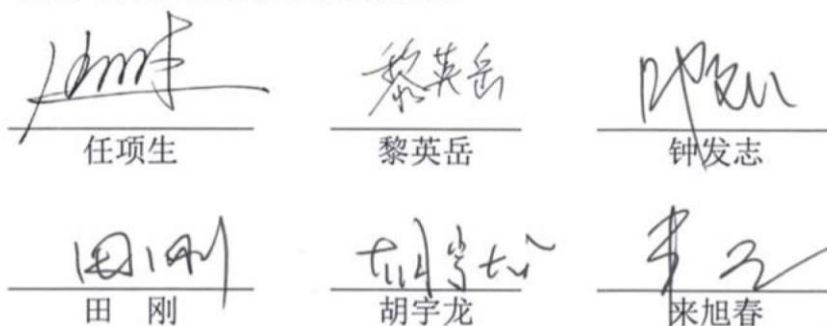 黎英岳
任项生 黎英岳 钟发志
田刚 胡宇龙
田 刚 胡宇龙 来旭春